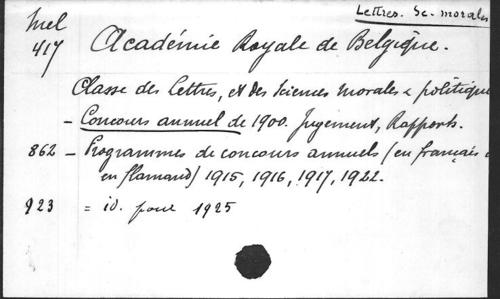 Lettres. Sc. morales
Mel
417
Académie Royale de Belgique.
Classe des Lettres, et des Sciences morales & politique
- Concours annuel de 1900. Jugement, Rapports.
862 - Programmes de concours annuels (en français
en flamand) 1915, 1916, 1917, 1922.
923 = id. pour 1925